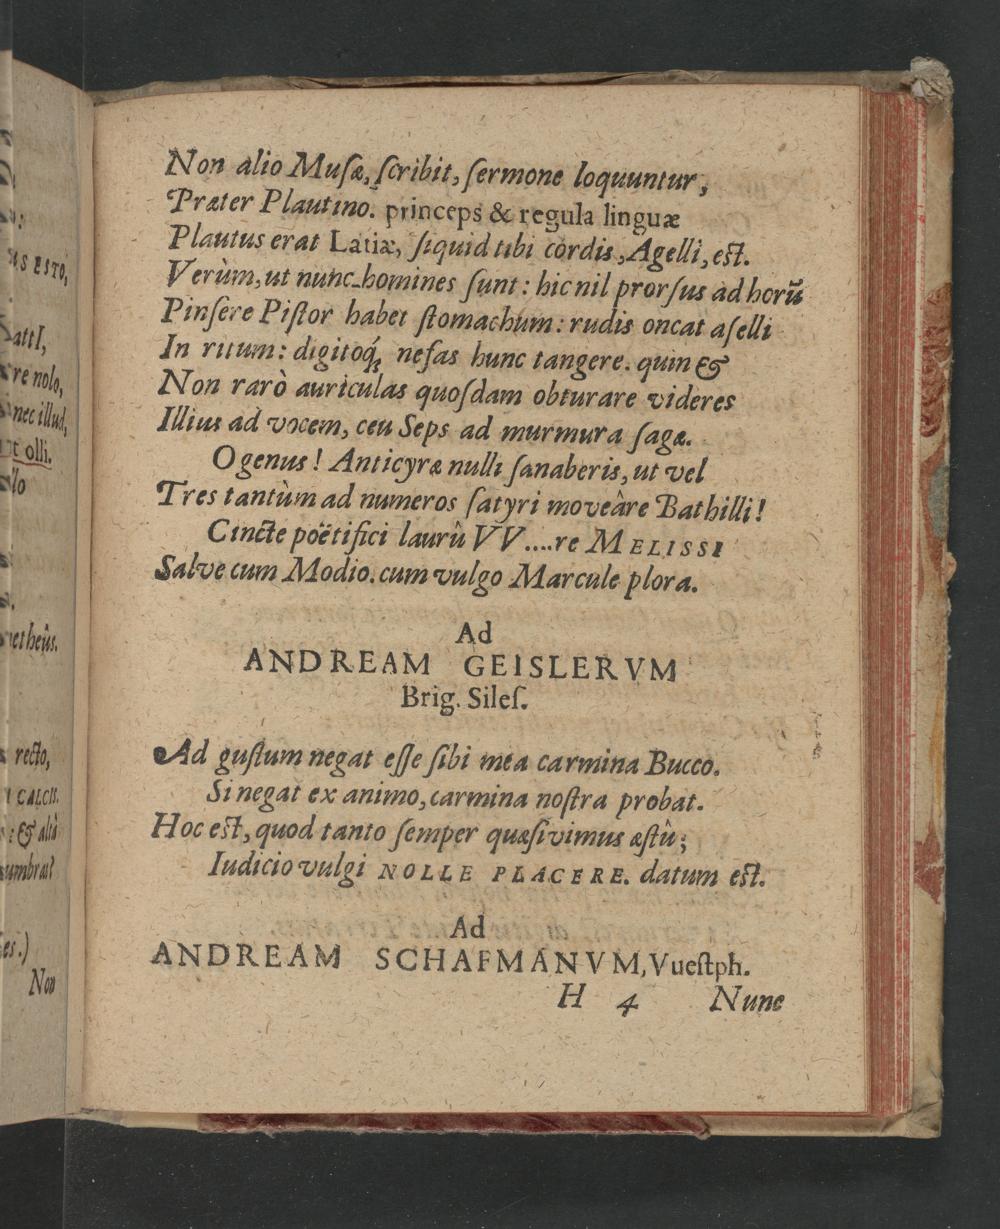 Non alio Muſæ, ſcribit, ſermone loquuntur,
Præter Plautino. princeps & regula linguæ
Plautus erat Latiæ, ſiquid tibi cordis, Agelli, est.
Verùm, ut nunc homines ſunt: hic nil prorſus ad horũ
Pinſere Piſtor habet ſtomachum: rudis oncat aſelli
In ritum: digitoq́; nefas hunc tangere. quin &
Non rarò auriculas quoſdam obturare videres
Illius ad vocem, ceu Seps ad murmura ſagæ.
O genus! Anticyræ nulli ſanaberis, ut vel
Tres tantùm ad numeros ſatyri moveâre Bathilli!
Cincte poëtifici laurû VV....re MELISSI
Salve cum Modio. cum vulgo Marcule plora.
Ad
ANDREAM GEISLERVM
Brig. Sileſ.
Ad guſtum negat eſſe ſibi mea carmina Bucco.
Si negat ex animo, carmina noſtra probat.
Hoc est, quod tanto ſemper quæſivimus æſtû;
Iudicio vulgi NOLLE PLACERE. datum est.
Ad
ANDREAM SCHAFMANVM, Vueſtph.
H 4 Nunc
US ESTO,
re nolo,
nec illud,
olli.
etheûs.
recto,
CALCH.
& aliâ
umbrat?
es.)
Non